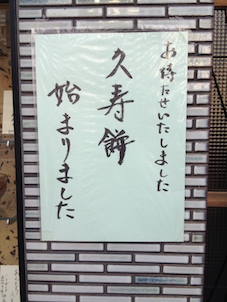 お待たせいたしました
久寿餅
始まりました